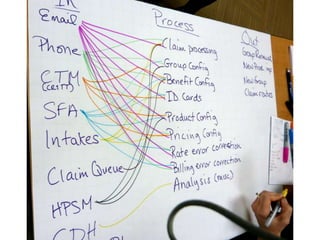 IN
Email
Phone
CTM
SFA
Intakes
Claim Queue
HPSM
CDH
Process
Claim processing
Group Config
Benefit Config
ID Cards
Product Config
Pricing Config
Rate error correction
Billing error correction
Analysis (misc)
Out
New Group
Claim notes